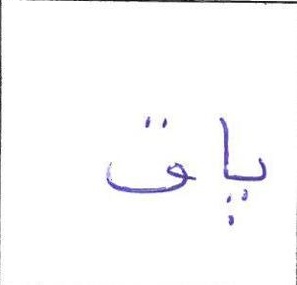 پاق